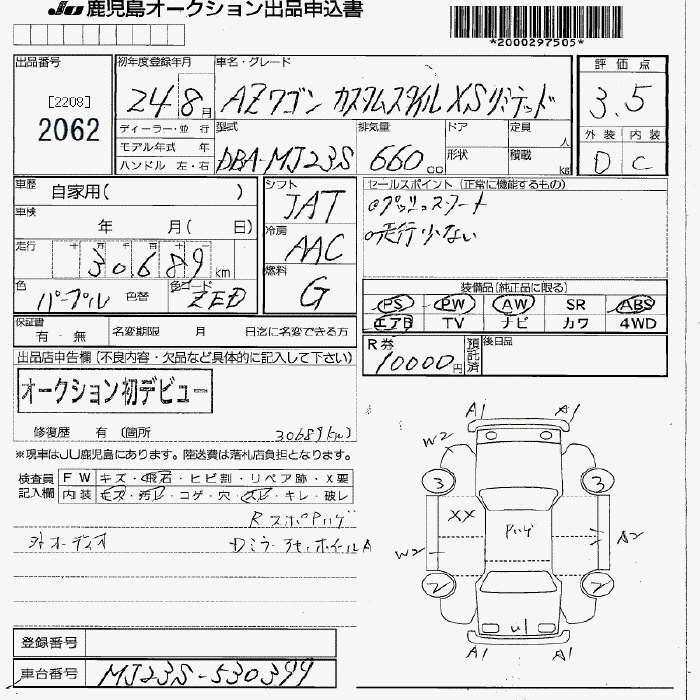 JU 鹿児島オークション出品申込書
*2000297505*
出品番号
[2208]
2062
初年度登録年月
24 8月
車名・グレード
AZワゴン カスタムスタイル XSリミテッド
評価点
3.5
外装 内装
D C
ディーラー・並行
モデル年式 年
ハンドル 左・右
型式
DBA-MJ23S
排気量
660cc
ドア
形状
定員 人
積載 kg
車歴
自家用( )
車検
年 月( 日)
走行 十 万 千 百 十 一
30689 km
色
パープル 色替
色コード
ZED
シフト
IAT
冷房
AAC
燃料
G
セールスポイント (正常に機能するもの)
○プッシュスタート
○走行少ない
装備品(純正品に限る)
PS PW AW SR ABS
エアB TV ナビ カワ 4WD
保証書
有 - 無
名変期限 月 日迄に名変できる方
R券
10000円
預託済
後日品
出品店申告欄 (不良内容・欠品など具体的に記入して下さい)
オークション初デビュー
修復歴 有 (箇所
30689km)
※現車はJU鹿児島にあります。陸送費は落札店負担となります。
検査員記入欄
FW キズ・飛石・ヒビ割・リペア跡・X要
内装 キズ・汚レ・コゲ・穴・スレ・キレ・破レ
外オーディオ
A1 A1
W2
3 3
XX
Pハゲ
W2
A2
2 2
U1
A1 A1
登録番号
車台番号
MJ23S-530399